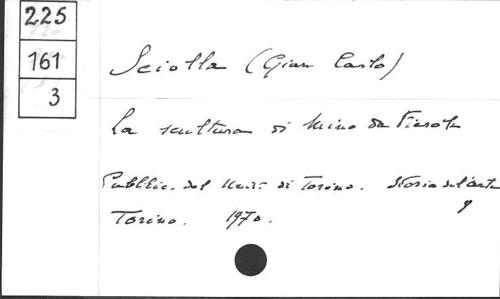 225
161
3
Sciolla (Gian Carlo)
La scultura di Mino da Fiesole
Pubblic. del Univ. di Torino. Storia dell'arte
9
Torino. 1970.